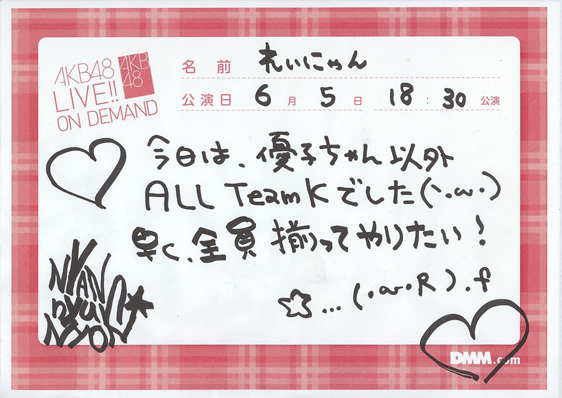 AKB48
LIVE!!
ON DEMAND
AKB
48
名前 れいにゃん
公演日 6月5日 18:30公演
今日は、優子ちゃん以外
ALL Team Kでした(・ω・)
早く、全員揃ってやりたい!
☆...(・ω・R).f
NYAN
NYON
DMM.com